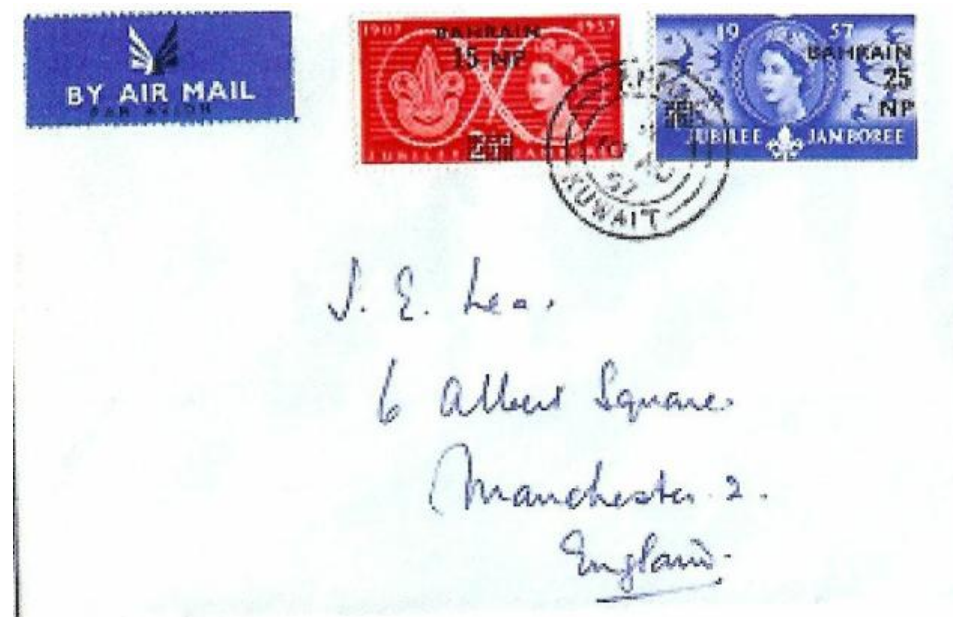 BY AIR MAIL
PAR AVION
1907 1957
BAHRAIN
15 NP
JUBILEE JAMBOREE
19 57
BAHRAIN
25
NP
JUBILEE JAMBOREE
57
KUWAIT
J. E. Lea.
6 Albert Square
Manchester. 2.
England.